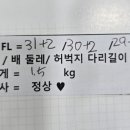 FL = 31+2 130+2 129
/ 배 둘레/ 허벅지 다리길이
게 = 1.5 kg
사 = 정상 ♥